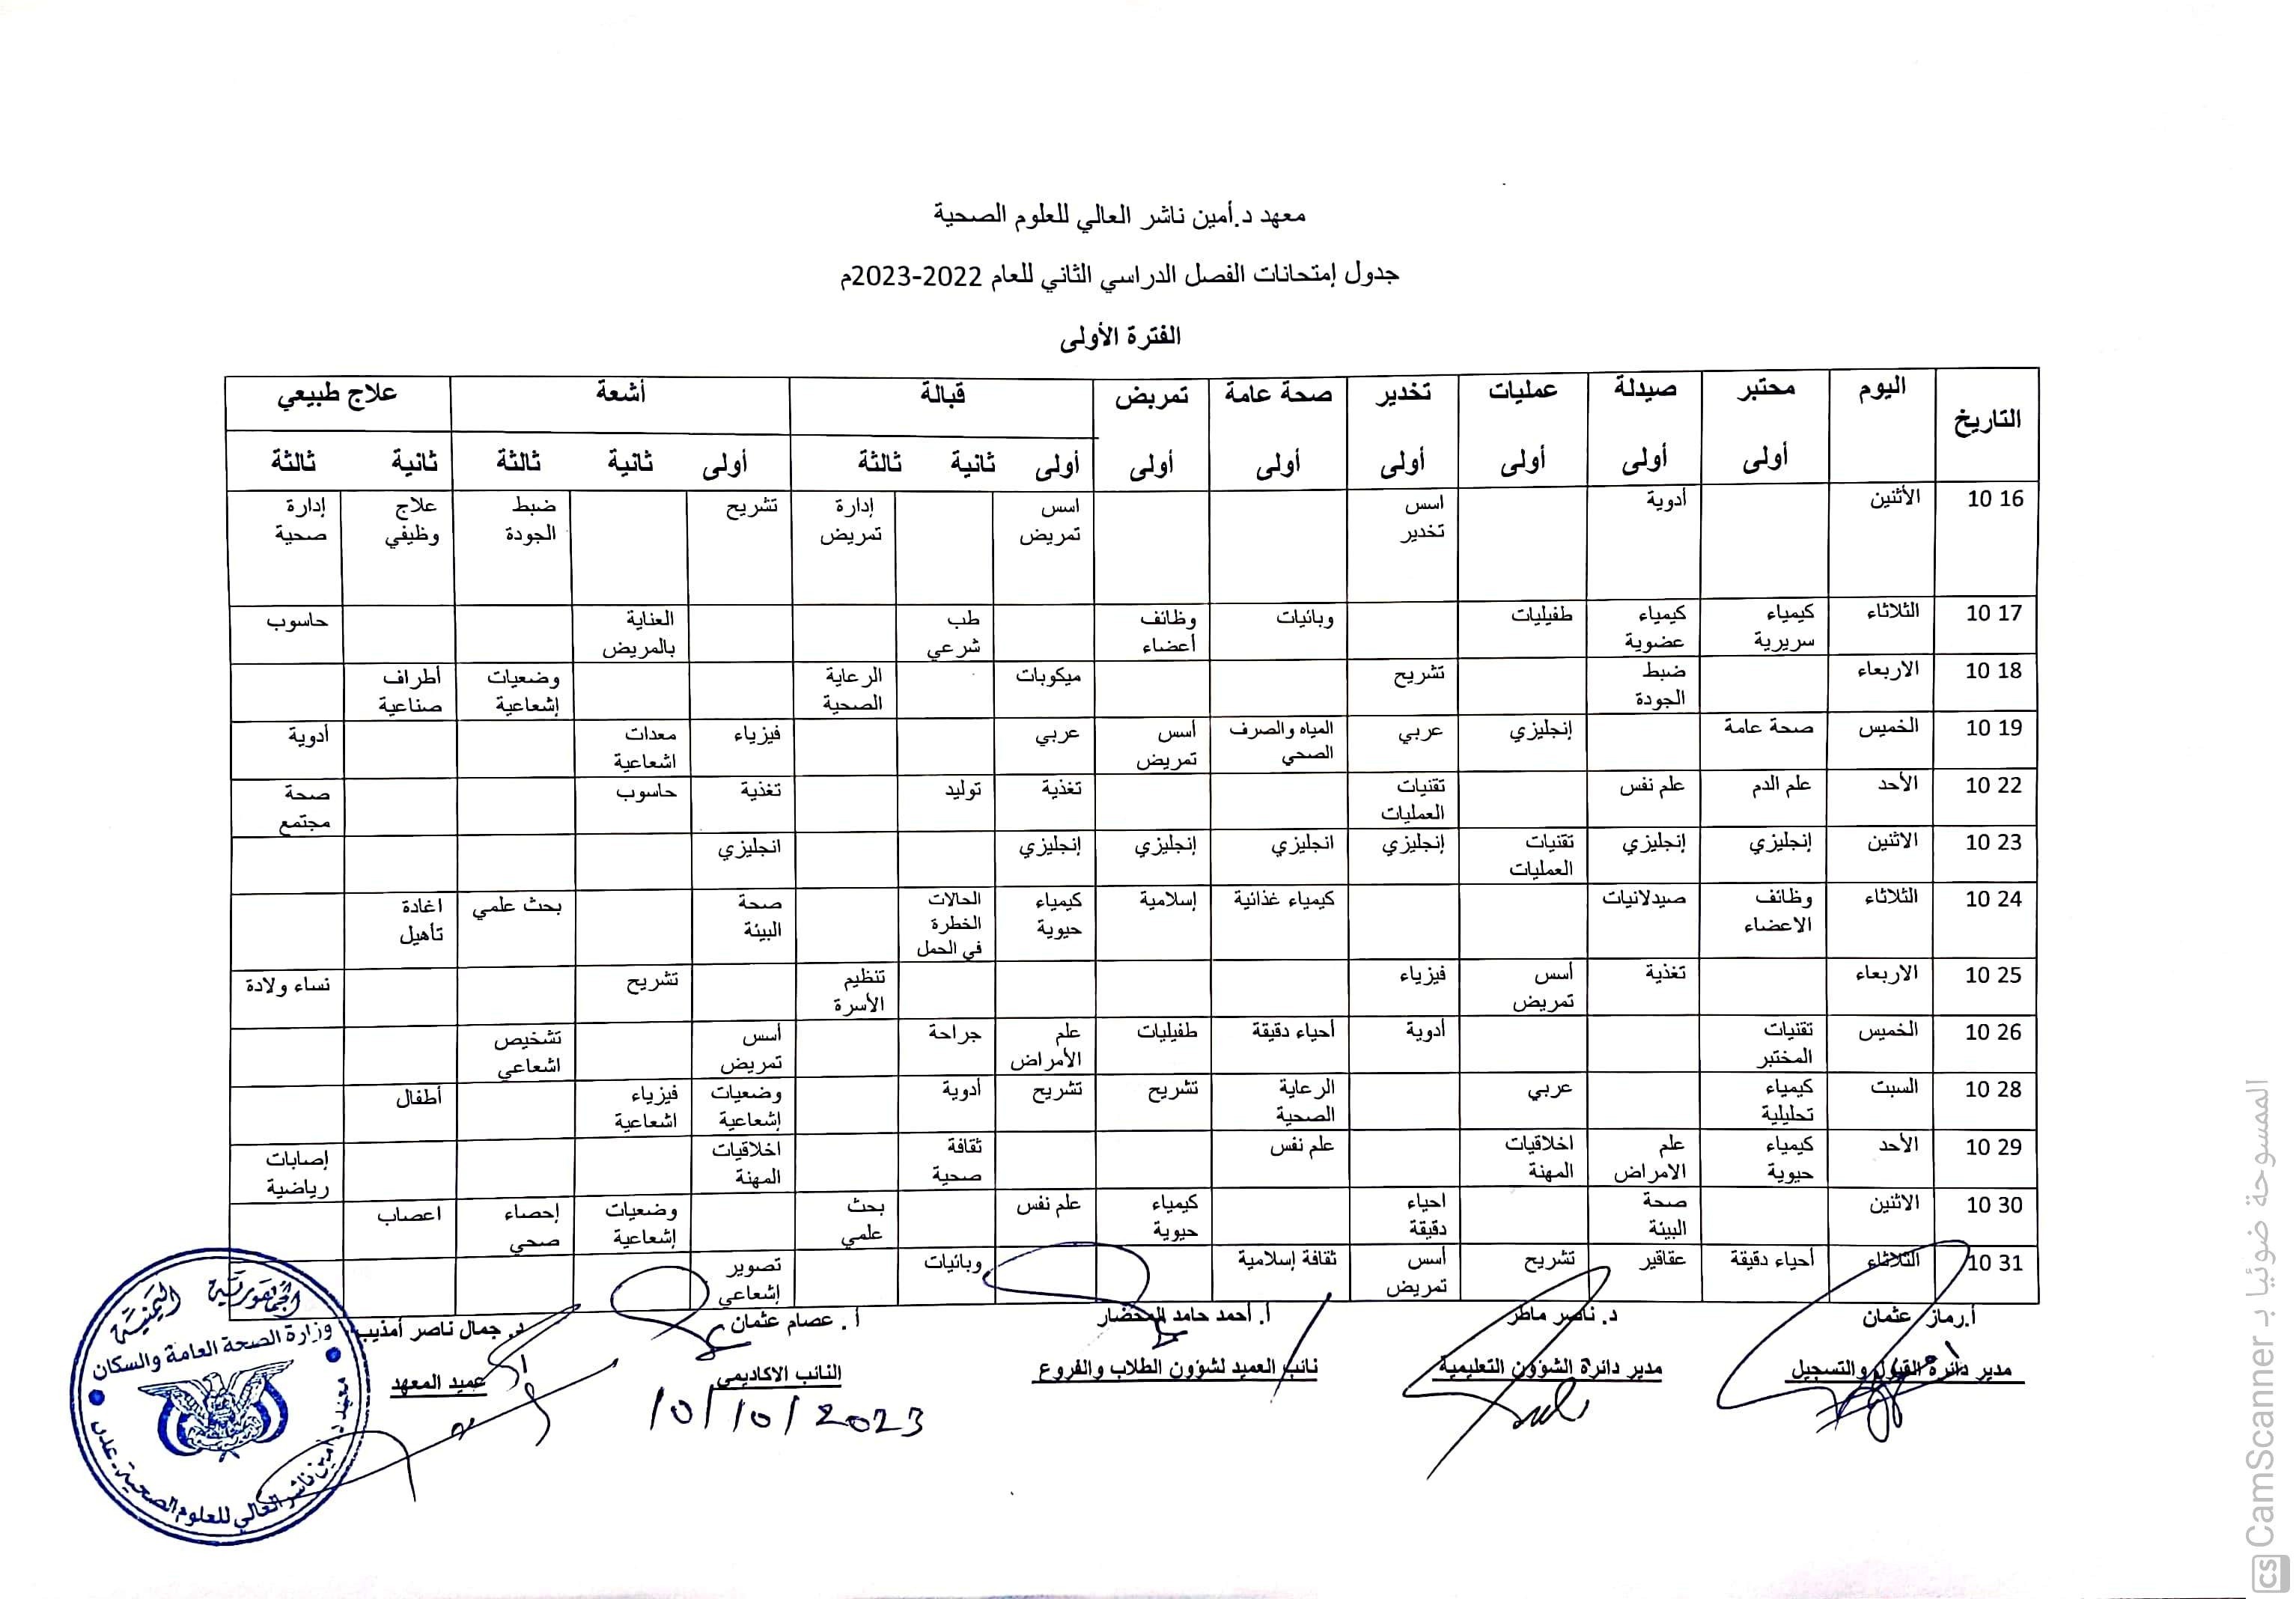 معهد د.أمين ناشر العالي للعلوم الصحية
جدول إمتحانات الفصل الدراسي الثاني للعام 2022-2023م
الفترة الأولى
التاريخ اليوم مختبر صيدلة عمليات تخدير صحة عامة تمريض قبالة أشعة علاج طبيعي
أولى أولى أولى أولى أولى أولى أولى ثانية ثالثة أولى ثانية ثالثة ثانية ثالثة
16 10 الأثنين أدوية اسس تخدير اسس تمريض إدارة تمريض تشريح ضبط الجودة علاج وظيفي إدارة صحية
17 10 الثلاثاء كيمياء سريرية كيمياء عضوية طفيليات وبائيات وظائف أعضاء طب شرعي العناية بالمريض حاسوب
18 10 الاربعاء ضبط الجودة تشريح ميكوبات الرعاية الصحية وضعيات إشعاعية أطراف صناعية
19 10 الخميس صحة عامة إنجليزي عربي المياه والصرف الصحي أسس تمريض عربي فيزياء معدات اشعاعية أدوية
22 10 الأحد علم الدم علم نفس تقنيات العمليات تغذية توليد تغذية حاسوب صحة مجتمع
23 10 الاثنين إنجليزي إنجليزي تقنيات العمليات إنجليزي انجليزي إنجليزي إنجليزي انجليزي
24 10 الثلاثاء وظائف الاعضاء صيدلانيات كيمياء غذائية إسلامية كيمياء حيوية الحالات الخطرة في الحمل صحة البيئة بحث علمي اغادة تأهيل
25 10 الاربعاء تغذية أسس تمريض فيزياء تنظيم الأسرة تشريح نساء ولادة
26 10 الخميس تقنيات المختبر أدوية أحياء دقيقة طفيليات علم الأمراض جراحة أسس تمريض تشخيص اشعاعي
28 10 السبت كيمياء تحليلية عربي الرعاية الصحية تشريح تشريح أدوية وضعيات إشعاعية فيزياء اشعاعية أطفال
29 10 الأحد كيمياء حيوية علم الامراض اخلاقيات المهنة علم نفس ثقافة صحية اخلاقيات المهنة إصابات رياضية
30 10 الاثنين صحة البيئة احياء دقيقة كيمياء حيوية علم نفس بحث علمي وضعيات إشعاعية إحصاء صحي اعصاب
31 10 الثلاثاء أحياء دقيقة عقاقير تشريح أسس تمريض ثقافة إسلامية وبائيات تصوير إشعاعي
أ.رماز عثمان د. ناصر ماطر أ. أحمد حامد المحضار أ . عصام عثمان د. جمال ناصر أمذيب
مدير دائرة القبول والتسجيل مدير دائرة الشؤون التعليمية نائب العميد لشؤون الطلاب والفروع النائب الاكاديمي عميد المعهد
10/10/2023
الجمهورية اليمنية
وزارة الصحة العامة والسكان
معهد د. أمين ناشر العالي للعلوم الصحية - عدن
الممسوحة ضوئيا بـ CamScanner
CS